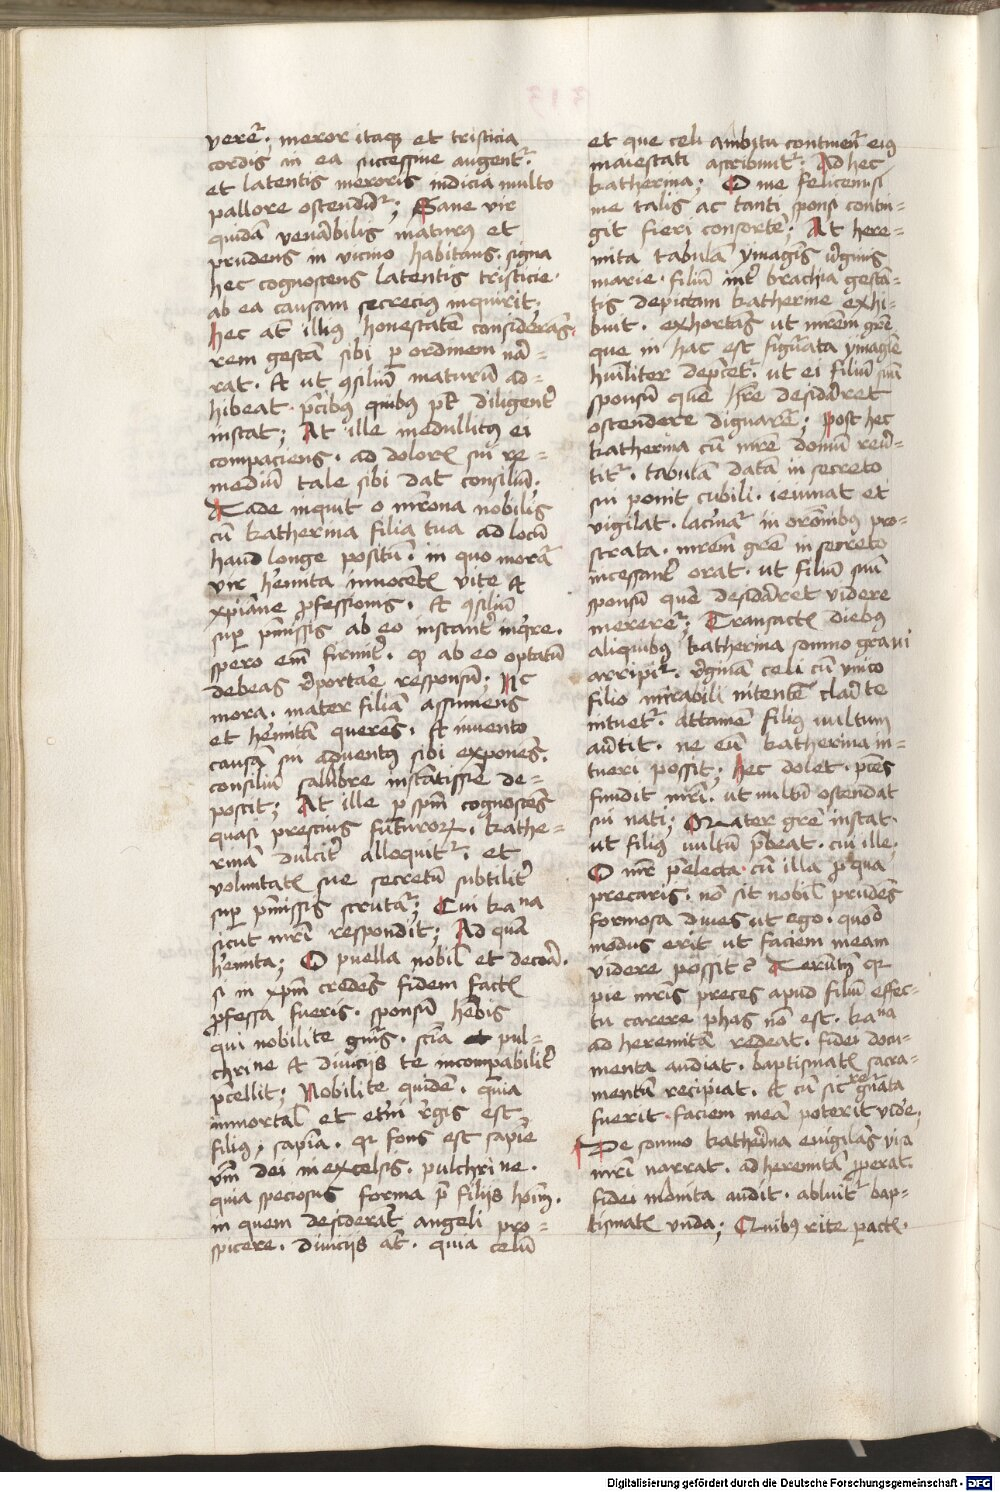 verer̄; meror itaqꝫ et tristicia
cordis in ea successiue augent᷑.
et latentis meroris indicia multo
pallore ostendūt᷑; Sane vir
quidā venābilis maturꝰ et
prudens in vicino habitans. signa
hec cognoscens latentis tristicie.
ab ea causam secreciꝰ inquirit;
Hec at̄ illiꝰ honestatē considerās.
rem gestā sibi ꝑ ordinem nā-
rat. Et ut ꝯsiliū maturū ad-
hibeat. p̄cibꝰ quibꝰ pt̄ diligent᷑
instat; At ille medullitꝰ ei
compaciens. ad dolorꝭ sui re-
mediū tale sibi dat consiliū.
Vade inquit o mr̄ona nobilis
cū katherina filia tua ad locū
haud longe positū. in quo morat᷑
vir h̓mita innocētꝭ vite et
xp̄iane ꝓfessionis. Et ꝯsiliū
suꝑ p̄missis ab eo instant᷑ inq̓re.
spero em̄ firmit᷑. qꝫ ab eo optatū
debeas rep̄ortare responsū; Nec
mora. mater filiā assumens
et h̓mitā querēs. Et inuento
causā sui aduentꝰ sibi exponēs.
consiliū salubre instātissie de-
poscit; At ille ꝑ spm̄ cognoscēs
quasi prescius futurorꝝ. kathe-
rinā dulcit᷑ alloquit᷑. et
voluntatꝭ sue secretū subtilit᷑
suꝑ p̄missis scrutat᷑; Cui kana
sicut mr̄i respondit; Ad quā
h̓mita; O puella nobil̄ et decora.
si in xp̄m credēs fidem factꝭ
ꝓfessa fueris. sponsū h̓ebis
qui nobilite gn̄is. scīa et pul-
chrine et diuiciis te incomparabilit᷑
p̄cellit; Nobilite quidē. quia
immortal̄ et et̓ni regis est
filiꝰ, sapīa. qꝛ fons est sapīe
v̓m dei in excelsis. pulchrine.
quia speciosus forma p̄ filiis hoīm.
in quem desiderāt angeli pro-
spicere. diuiciis at̄. quia celū
et que celi ambitu continent᷑ eiꝰ
maiestati ascribunt᷑. Ad hec
katherina; O me felicem si
me talis ac tanti sponsi contin-
git fieri consortē. At here-
mita tabulā ymagīs v̓ginis
marie. filiū int᷑ brachia gestā-
tis depictam katherine exhi-
buit. exhortās ut mr̄em gr̄e
que in hac est figurata ymagīe
hūiliter dep̄cet᷑ ut ei filiū suū
sponsū quē h̓re desideret
ostendere dignaret᷑; Post hec
katherina cū mr̄e domū reu̓-
tit᷑. tabulā datā in secreto
sui ponit cubili. ieiunat et
vigilat. lacrimat᷑ in or̄onibꝰ pro-
strata. mr̄em gr̄e in secreto
incessant᷑ orat. ut filiū suū
sponsū quē desideret videre
mereret᷑; Transactꝭ diebꝰ
aliquibꝰ katherina somno graui
arripit᷑. reginā celi cū vnico
filio mirabili nitentē clarite
intuet᷑. attamē filiꝰ uultum
au̓tit. ne eū katherina in-
tueri possit; Hec dolet. p̄ces
fundit mr̄i. ut uultū ostendat
sui nati; Mater gr̄e instat.
ut filiꝰ uultū p̄beat. cui ille,
O mr̄ p̄electa. cū illa ꝓ qua
precaris. nō sit nobil̄ prudēs
formosa diues ut ego. quod
modus erit ut faciem meam
videre possit? Verūtn̄ qꝛ
pie mr̄is preces apud filiū effec-
tu carere phas nō est. kana
ad heremitā redeat. fidei docu-
menta audiat. baptismatꝭ sacra-
mentū recipiat. Et cū sic regnata
fuerit. faciem meā poterit vide.
De somno katherina euigilās visa
mr̄i narrat. ad heremitā ꝓperat.
fidei monita audit. abluit᷑ bap-
tismatꝭ vnda; Quibꝰ rite pactꝭ.
Digitalisierung gefördert durch die Deutsche Forschungsgemeinschaft - DFG